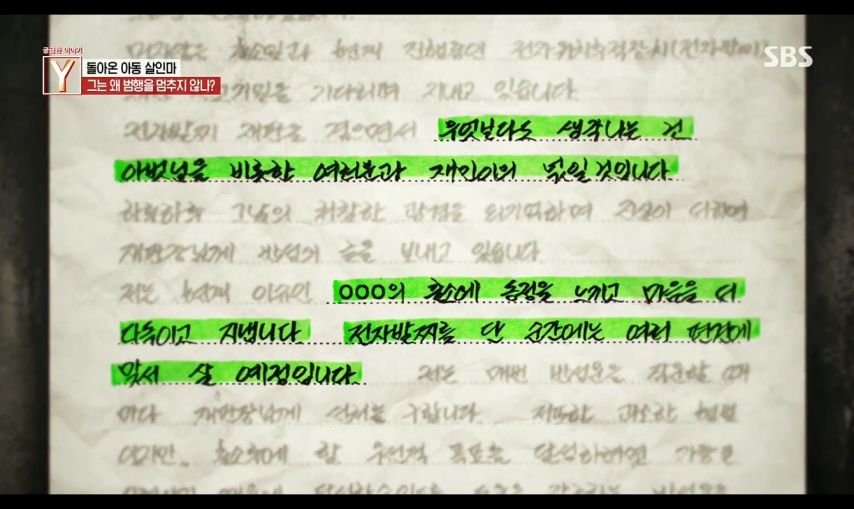 궁금한 이야기
Y
돌아온 아동 살인마
그는 왜 범행을 멈추지 않나?
SBS
현재 진행중인 전자위치추적장치(전자발찌)
기다리며 지내고 있습니다.
전자발찌 재판을 겪으면서 무엇보다도 생각나는 건
아버님을 비롯한 여러분과 재민이의 넋일 것입니다
하루하루 그날의 처참한 광경을 되기억하며 진심이 다하여
재판장님께 반성의 글을 보내고 있습니다
저는 현재 이슈인 OOO의 출소에 동정을 느끼고 마음을 더
다독이고 지냅니다. 전자발찌를 단 순간에는 여러 편견에
맞서 살 예정입니다. 저는 매번 반성문을 작문할 때
마다 재판장님께 선처를 구합니다.
출소후에 할 우선적 목표를 달성하려면 가장